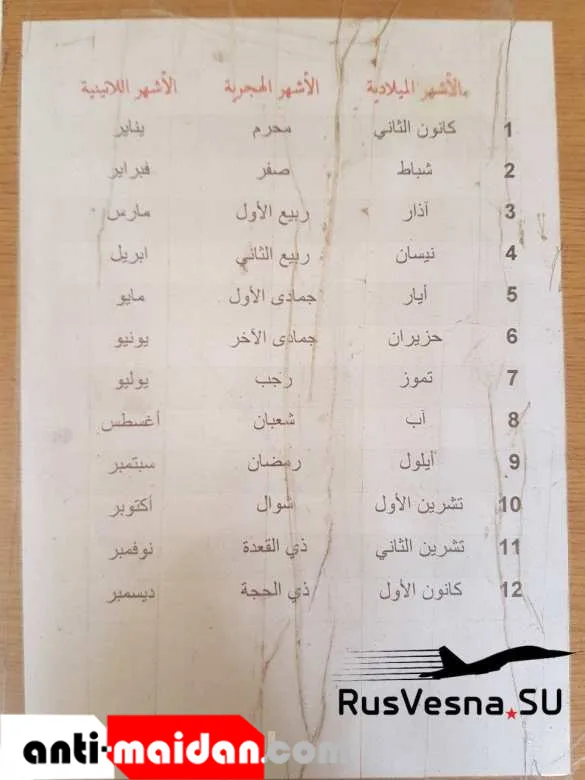 الأشهر الميلادية الأشهر الهجرية الأشهر اللاتينية
1 كانون الثاني محرم يناير
2 شباط صفر فبراير
3 آذار ربيع الأول مارس
4 نيسان ربيع الثاني ابريل
5 أيار جمادى الأول مايو
6 حزيران جمادى الأخر يونيو
7 تموز رجب يوليو
8 آب شعبان أغسطس
9 أيلول رمضان سبتمبر
10 تشرين الأول شوال أكتوبر
11 تشرين الثاني ذي القعدة نوفمبر
12 كانون الأول ذي الحجة ديسمبر
RusVesna.SU
anti-maidan.com